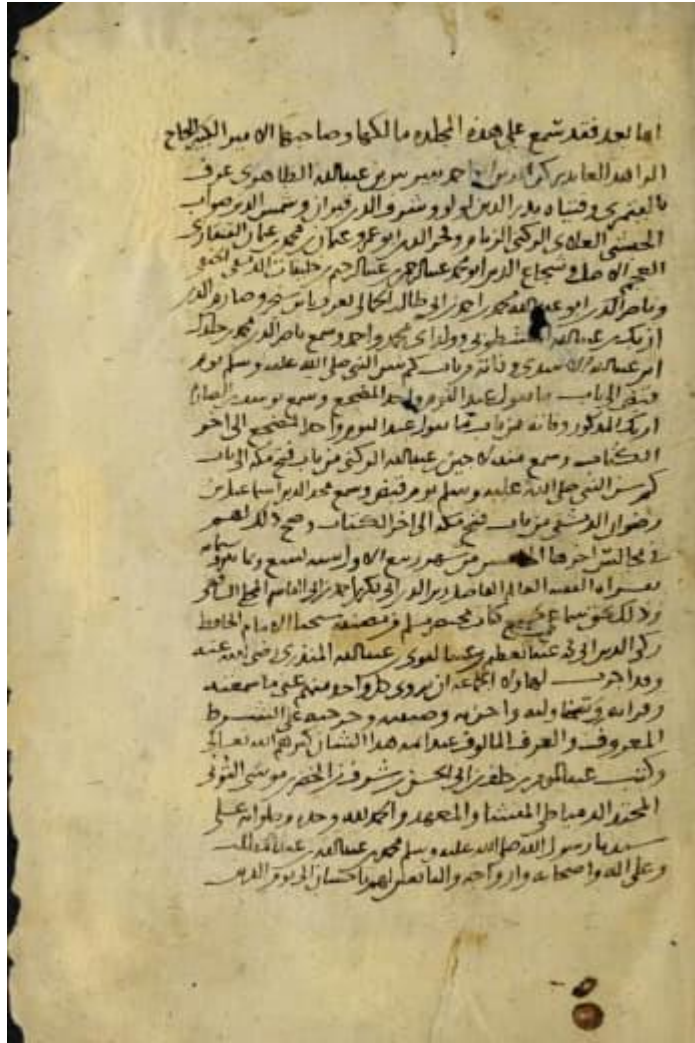 اما بعد فقد سمع على هذه المجلدة مالكها وصاحبها الامير الكبير الحاج
الزاهد العابد ركن الدين احمد بيبرس بن عبدالله الظاهرى عرف
وفتياه بدر الدين لولو وشرف الدين قيران وشمس الدين صواب
الحسنى الركنى الزمام وفخر الدين ابو عمرو عثمان بن محمد بن عثمان
الاصل وشجاع الدين ابو محمد عبدالرحمن بن عبدالرحيم بن
وناصر الدين ابو عبدالله محمد بن احمد بن ابى طالب وصارم الدين
ازبك بن عبدالله وولداى محمد واحمد وسمع ناصر الدين محمد بن
ابن عبدالله الاسدى وفاته باب كم سن النبى صلى الله عليه وسلم يوم
قبض الى باب ما يقول عند النوم واخذ المضجع وسمع يوسف بن الصارم
ازبك المذكور وفاته من باب ما يقول عند النوم واخذ المضجع الى اخر
الكتاب وسمع منه لاجين بن عبدالله الركنى من باب فتح مكة الى باب
كم سن النبى صلى الله عليه وسلم يوم قبض وسمع مجد الدين اسماعيل بن
رضوان الدمشقى من باب فتح مكة الى اخر الكتاب وصح ذلك لهم
فى مجالس اخرها من شهر ربيع الاول سنة تسع
بقراة الفقيه العالم الفاضل زين الدين ابى بكر بن احمد بن ابى القاسم
وذلك بحق سماعى جميع كتاب مختصر مسلم من مصنفه شيخنا الامام الحافظ
زكى الدين ابى محمد عبدالعظيم بن عبدالقوى بن عبدالله المنذرى رضى الله عنه
وقد اجزت لهاولاء الجماعة ان يروى كل واحد منهم عنى ما سمعته
وقراته واجزته وصنفته وخرجته على الشرط
المعروف والعرف المالوف عند اهل هذا الشان كثرهم الله تعالى
وكتب عبدالمومن بن خلف بن ابى الحسن بن شرف بن الخضر بن موسى التونى
المحتد الدمياطى المنشا والمعهد والحمد لله وحده وصلواته على
سيدنا رسول الله صلى الله عليه وسلم محمد بن عبدالله بن عبدالمطلب
وعلى اله واصحابه وازواجه والتابعين لهم باحسان الى يوم الدين